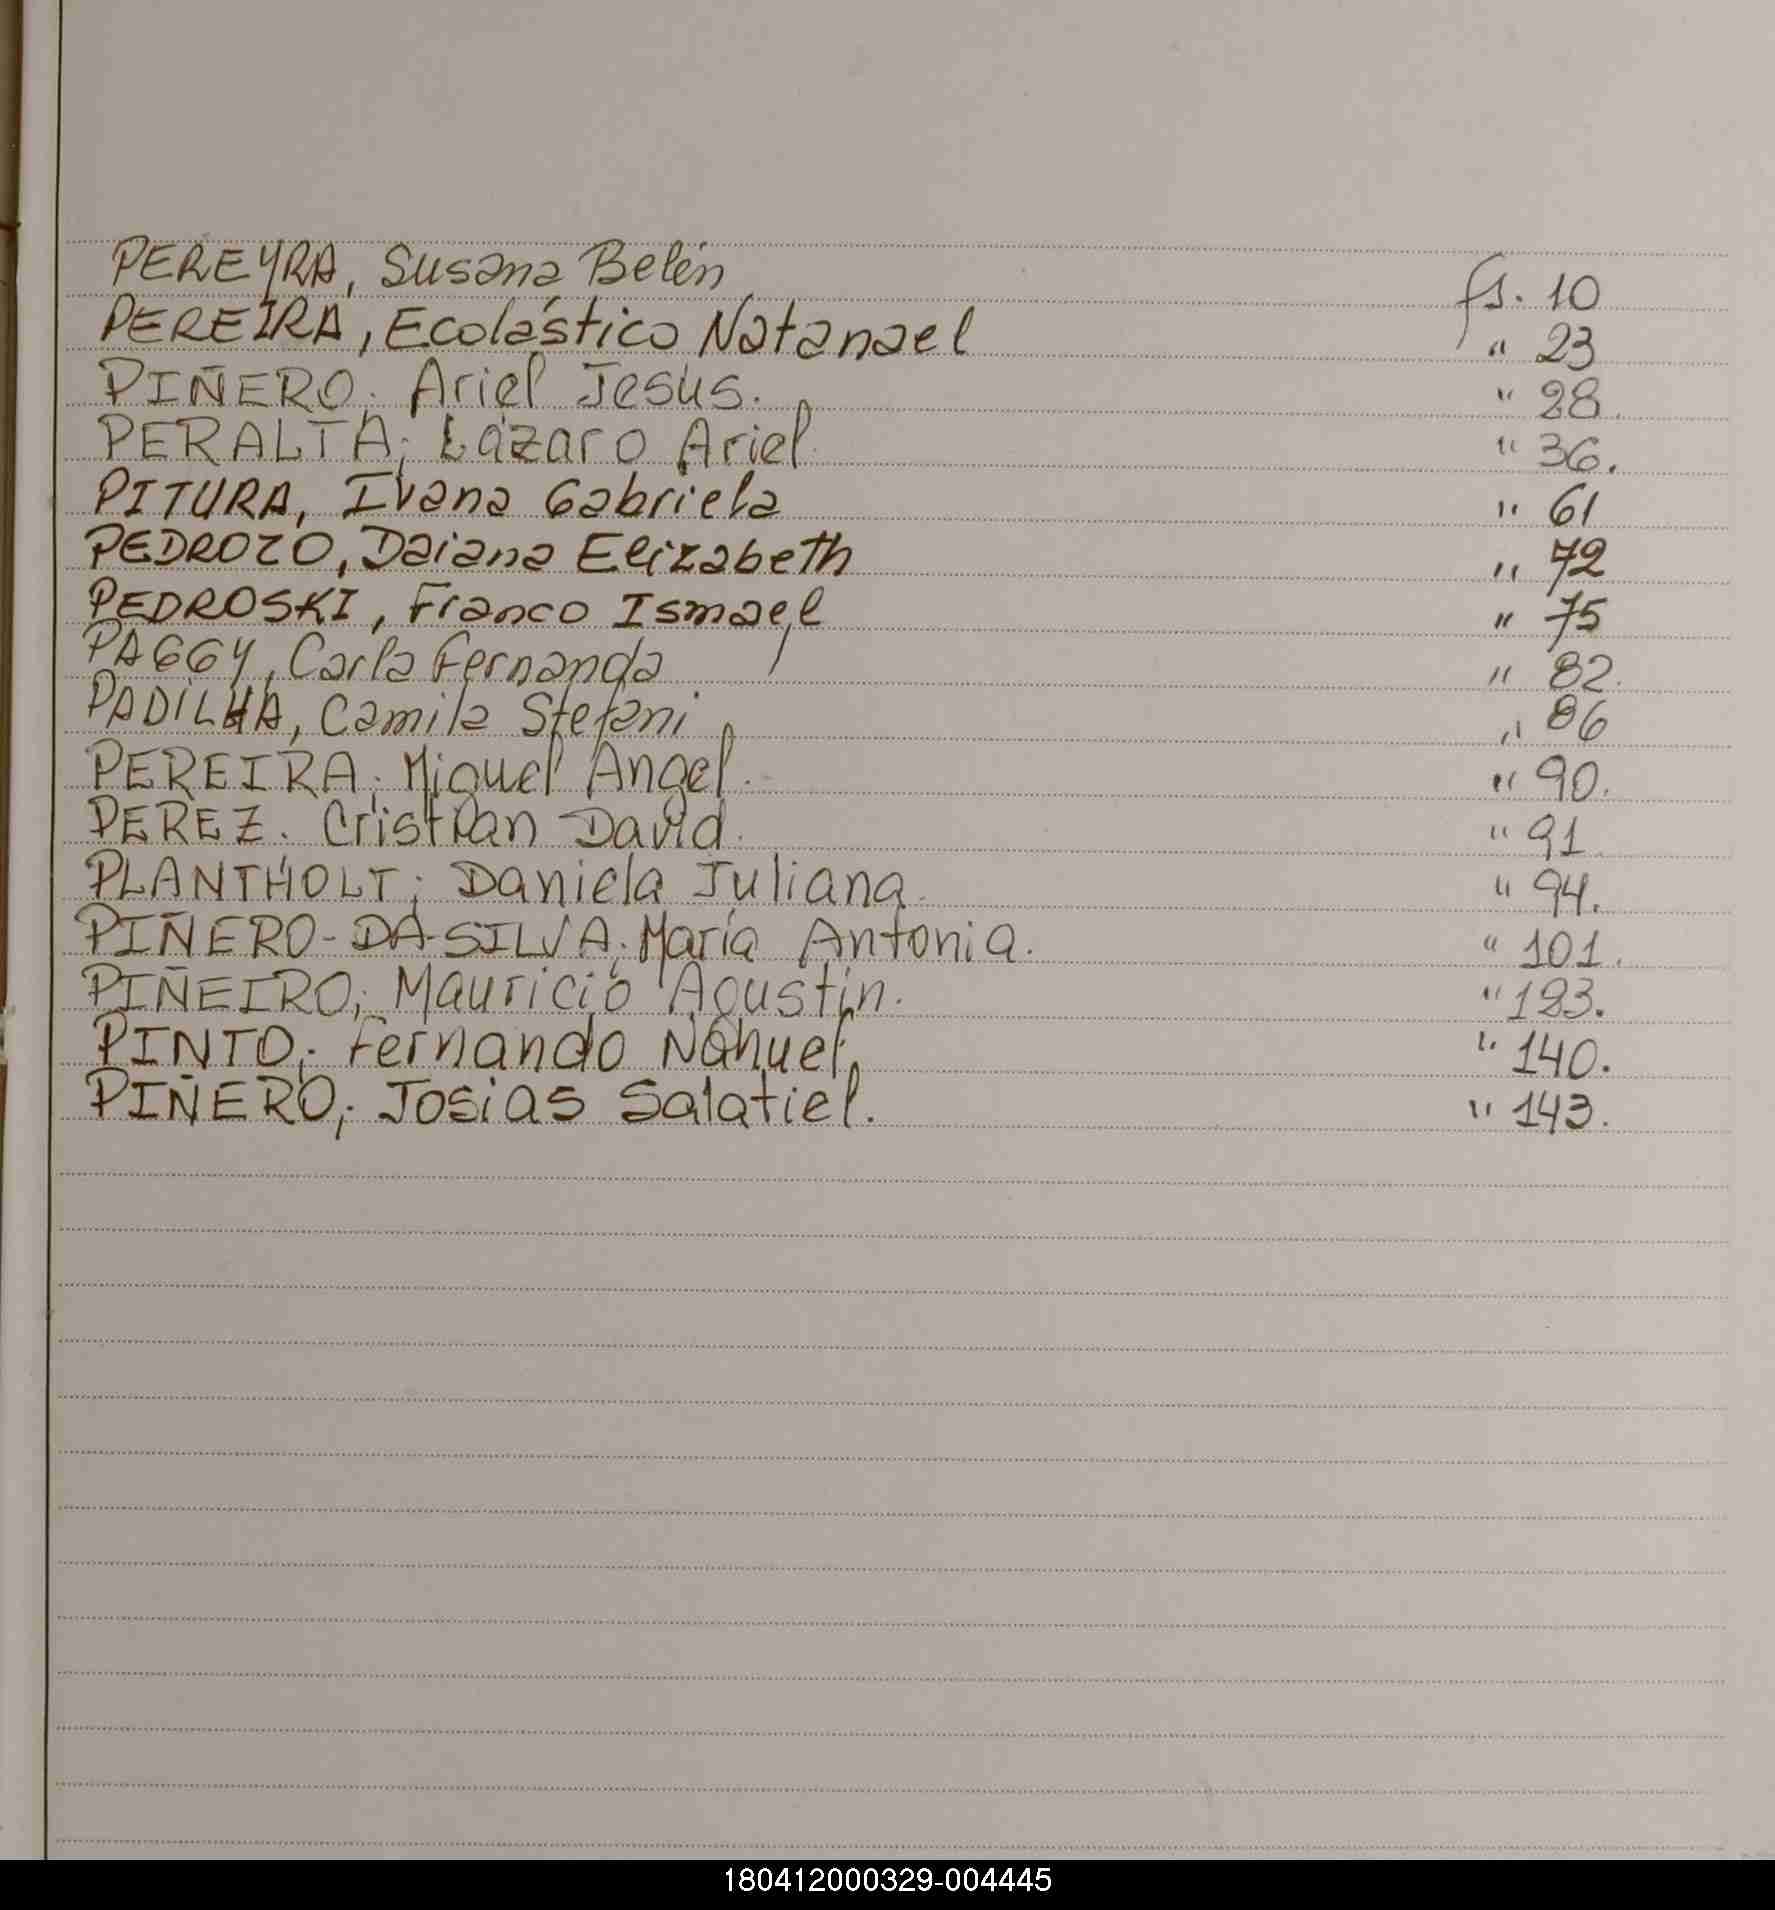 PEREYRA, Susana Belén fs. 10
PEREIRA, Ecolástico Natanael " 23
PIÑERO. Ariel Jesús. " 28.
PERALTA; Lázaro Ariel. " 36.
PITURA, Ivana Gabriela " 61
PEDROZO, Daiana Elizabeth " 72
PEDROSKI, Franco Ismael " 75
PAGGY, Carla Fernanda " 82.
PADILHA, Camila Stefani " 86
PEREIRA; Miguel Angel. " 90.
PEREZ. Cristian David. " 91
PLANTHOLT; Daniela Juliana. " 94.
PIÑERO-DA-SILVA; María Antonia. " 101.
PIÑEIRO; Mauricio Agustín. " 123.
PINTO; Fernando Nahuel. " 140.
PIÑERO; Josías Salatiel. " 143.
180412000329-004445